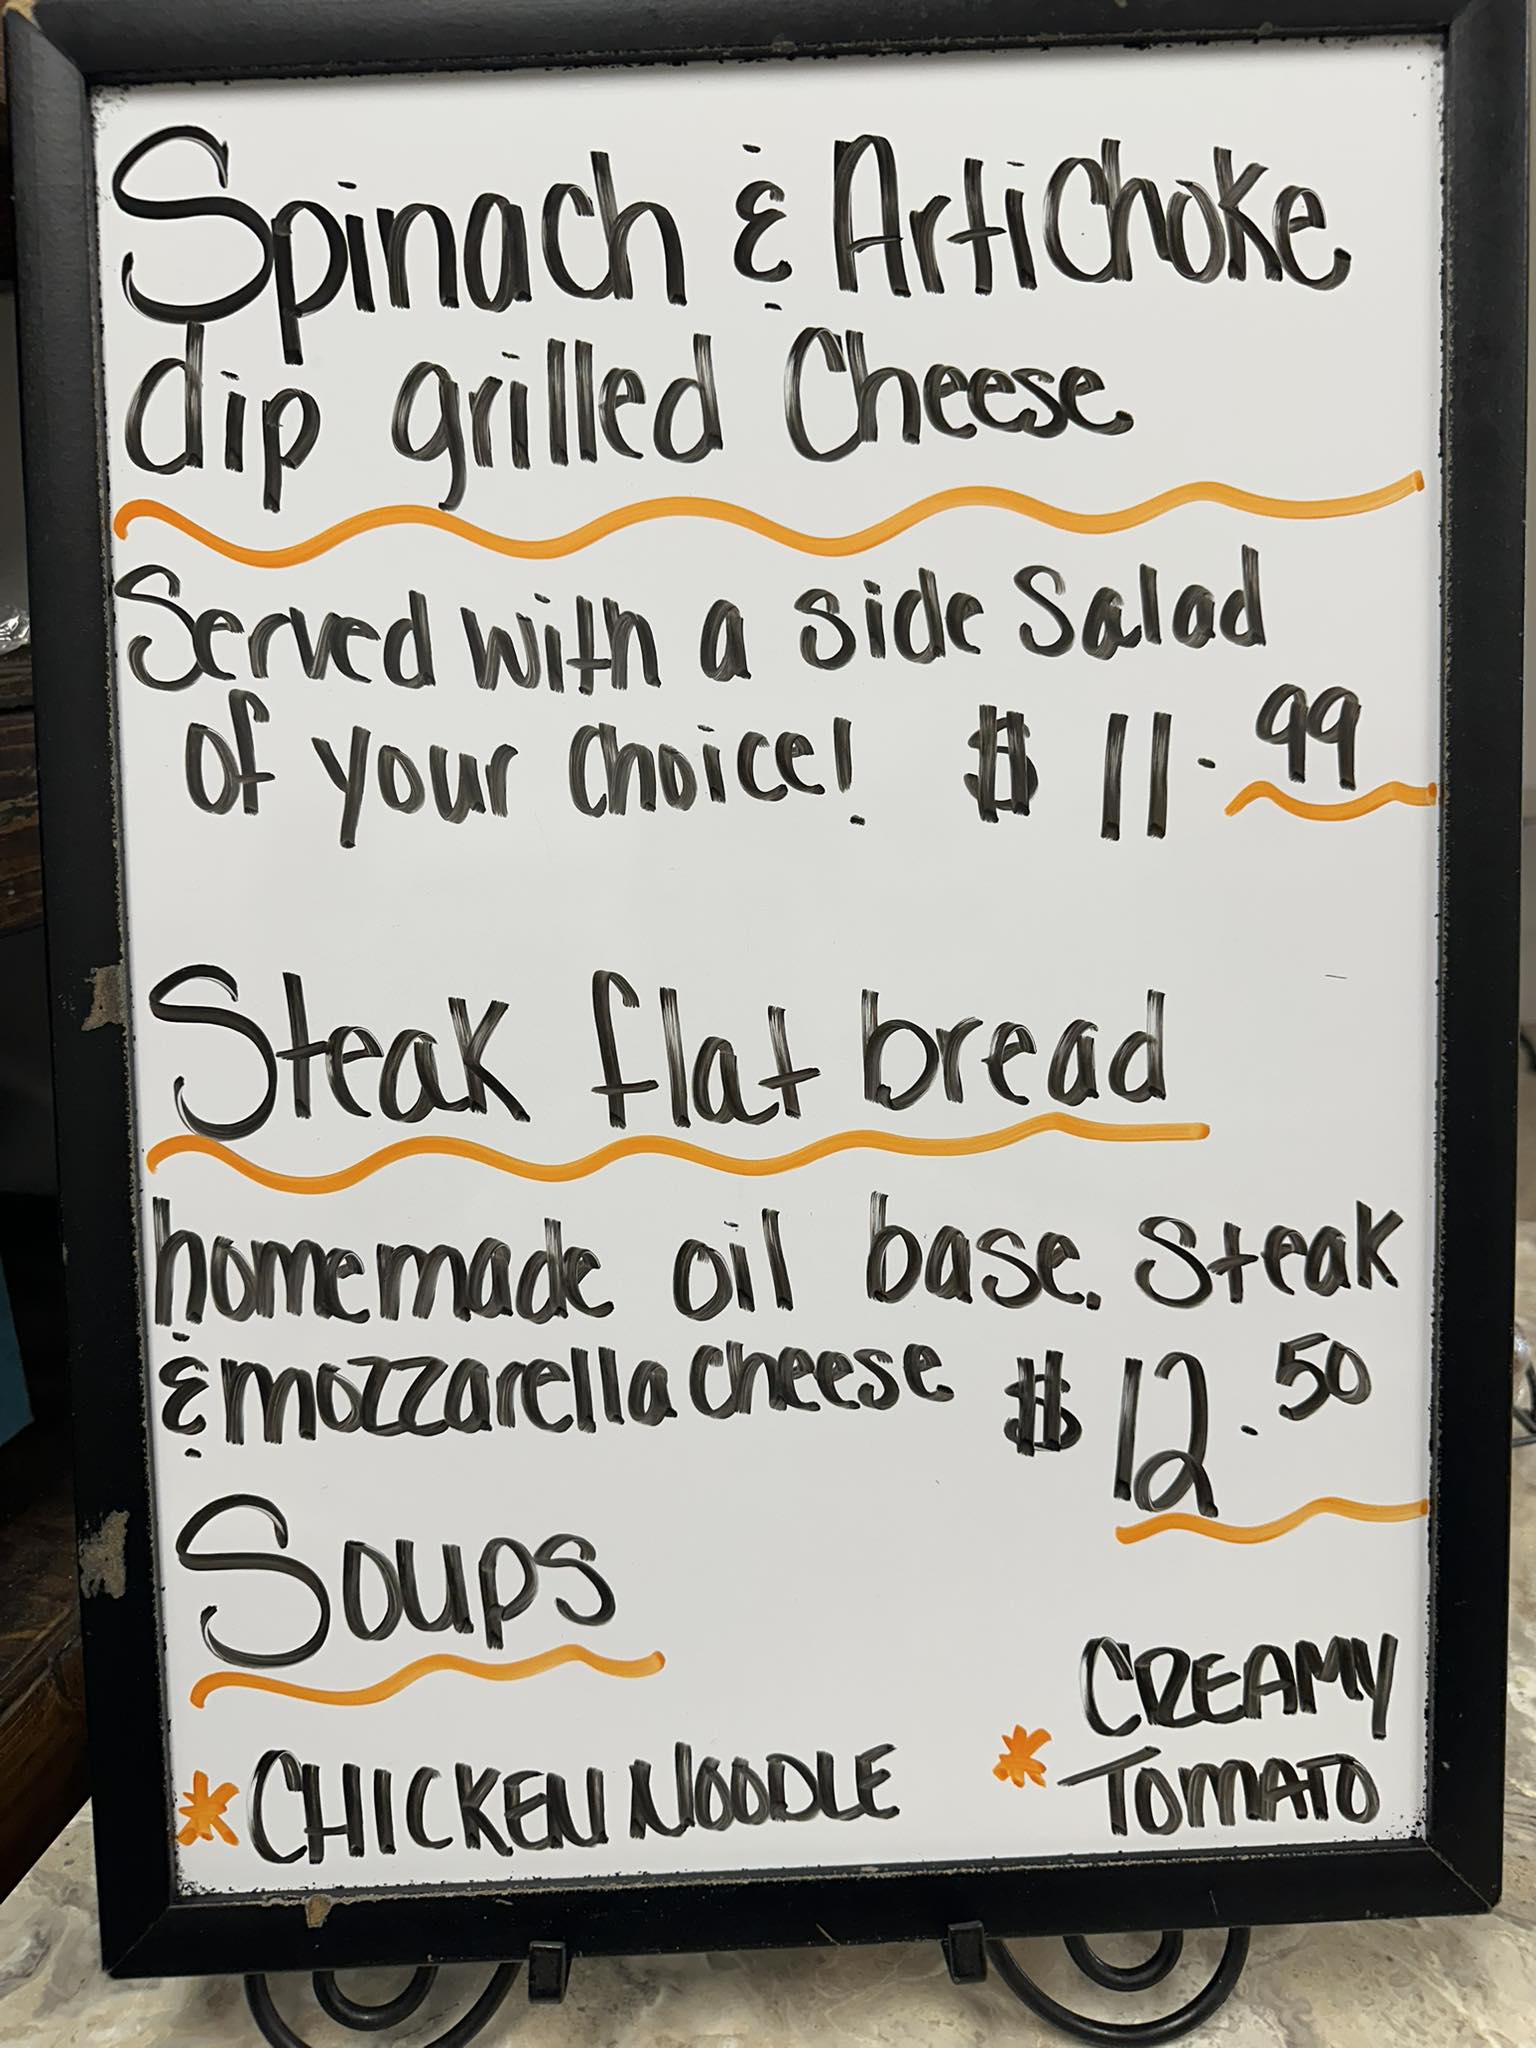 Spinach & Artichoke
dip grilled Cheese
Served with a side Salad
of your choice! $11.99
Steak flat bread
homemade oil base. Steak
& mozzarella cheese $12.50
Soups
* CHICKEN NOODLE
* CREAMY
TOMATO